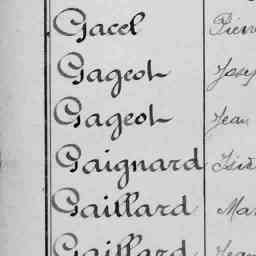 Gacel Pierr
Gageot Josep
Gageot Jean
Gaignard Isid
Gaillard Mar
Gaillard Jean